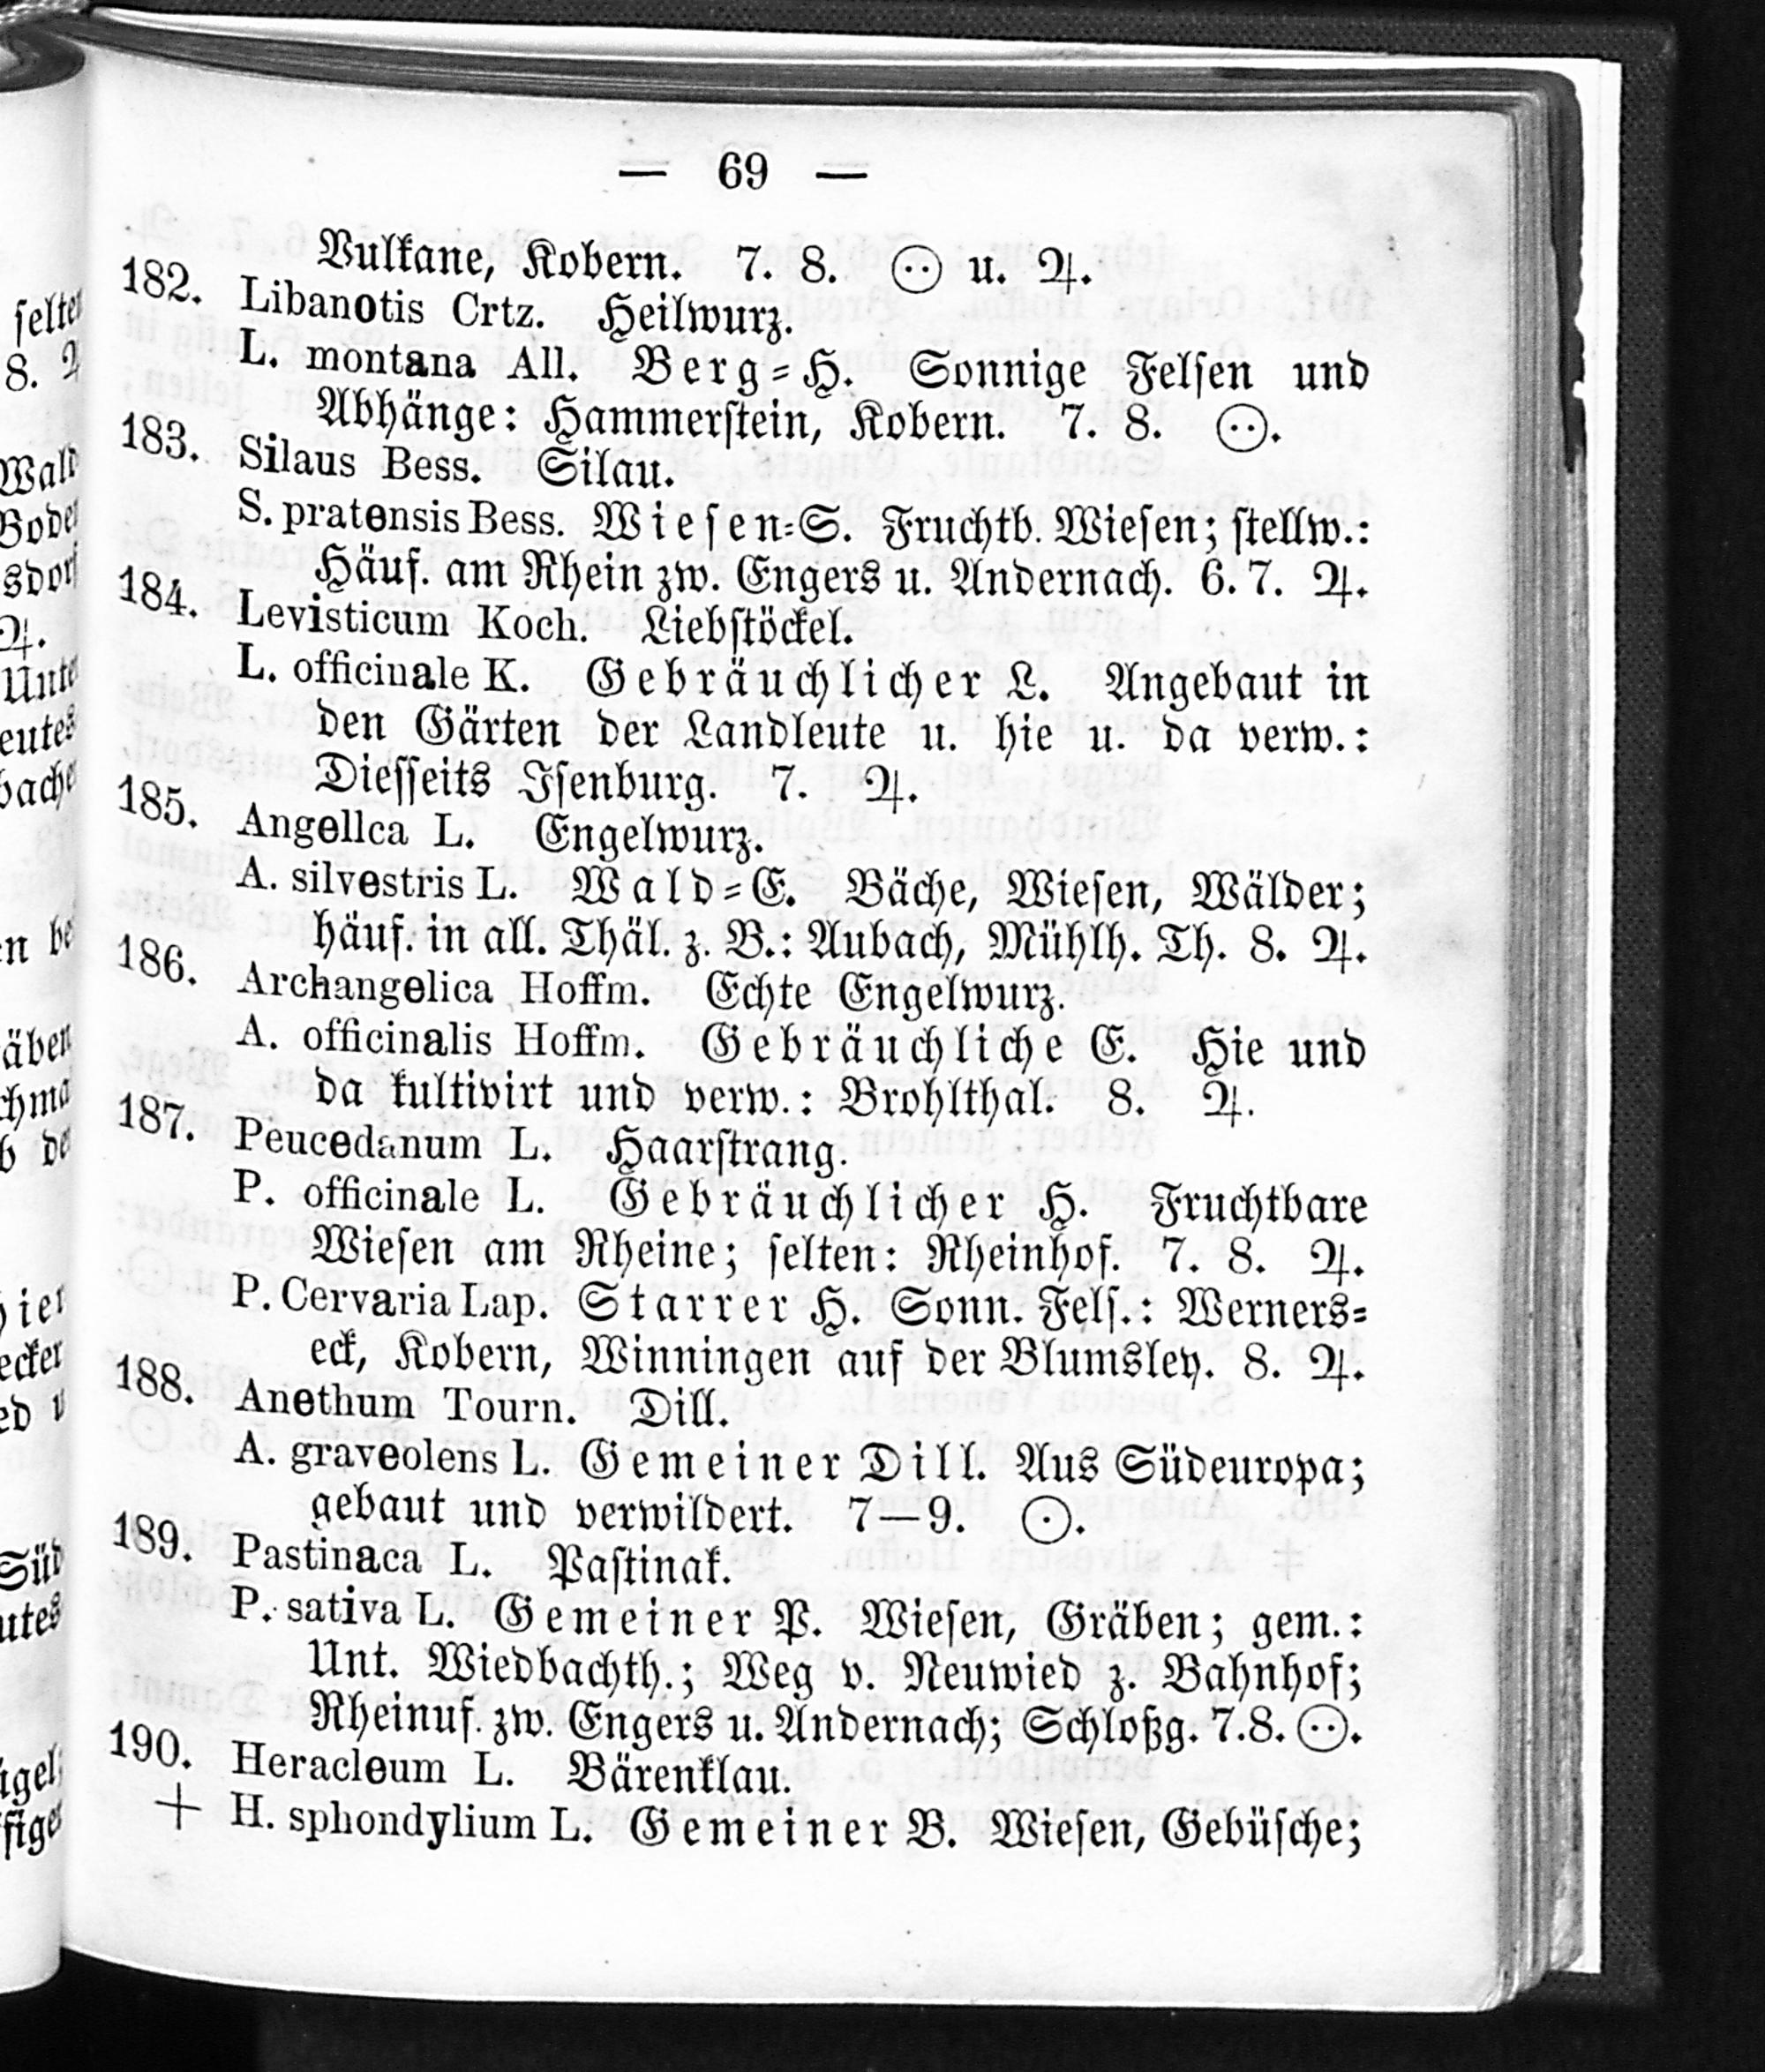 — 69 —
Vulkane, Kobern. 7. 8. ⊙ u. ♃.
182. Libanotis Crtz. Heilwurz.
L. montana All. Berg-H. Sonnige Felsen und
Abhänge: Hammerstein, Kobern. 7. 8. ⊙.
183. Silaus Bess. Silau.
S. pratensis Bess. Wiesen-S. Fruchtb. Wiesen; stellw.:
Häuf. am Rhein zw. Engers u. Andernach. 6. 7. ♃.
184. Levisticum Koch. Liebstöckel.
L. officinale K. Gebräuchlicher L. Angebaut in
den Gärten der Landleute u. hie u. da verw.:
Diesseits Isenburg. 7. ♃.
185. Angelica L. Engelwurz.
A. silvestris L. Wald-E. Bäche, Wiesen, Wälder;
häuf. in all. Thäl. z. B.: Aubach, Mühlh. Th. 8. ♃.
186. Archangelica Hoffm. Echte Engelwurz.
A. officinalis Hoffm. Gebräuchliche E. Hie und
da kultivirt und verw.: Brohlthal. 8. ♃.
187. Peucedanum L. Haarstrang.
P. officinale L. Gebräuchlicher H. Fruchtbare
Wiesen am Rheine; selten: Rheinhof. 7. 8. ♃.
P. Cervaria Lap. Starrer H. Sonn. Fels.: Werners-
eck, Kobern, Winningen auf der Blumsley. 8. ♃.
188. Anethum Tourn. Dill.
A. graveolens L. Gemeiner Dill. Aus Südeuropa;
gebaut und verwildert. 7—9. ⊙.
189. Pastinaca L. Pastinak.
P. sativa L. Gemeiner P. Wiesen, Gräben; gem.:
Unt. Wiedbachth.; Weg v. Neuwied z. Bahnhof;
Rheinuf. zw. Engers u. Andernach; Schloßg. 7.8. ⊙.
190. Heracleum L. Bärenklau.
+ H. sphondylium L. Gemeiner B. Wiesen, Gebüsche;